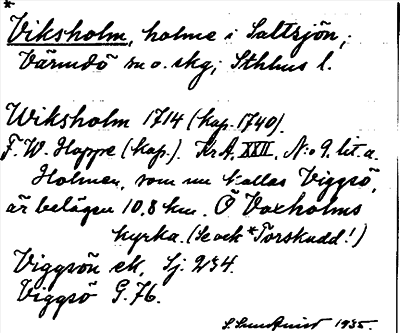 *
Viksholm, holme i Saltsjön,
Värmdö sn o. skg; Sthlms l.
Wiksholm 1714 (kop. 1740).
F. W. Hoppe (kop.). KrA, XXII, N:o 9. lit. a.
Holmen, som nu kallas Viggsö,
är belägen 10,8 km. Ö Vaxholms
kyrka. (Se ock *Torskudd!)
Viggsön ek, Sj: 234.
Viggsö G. 76.
1935.